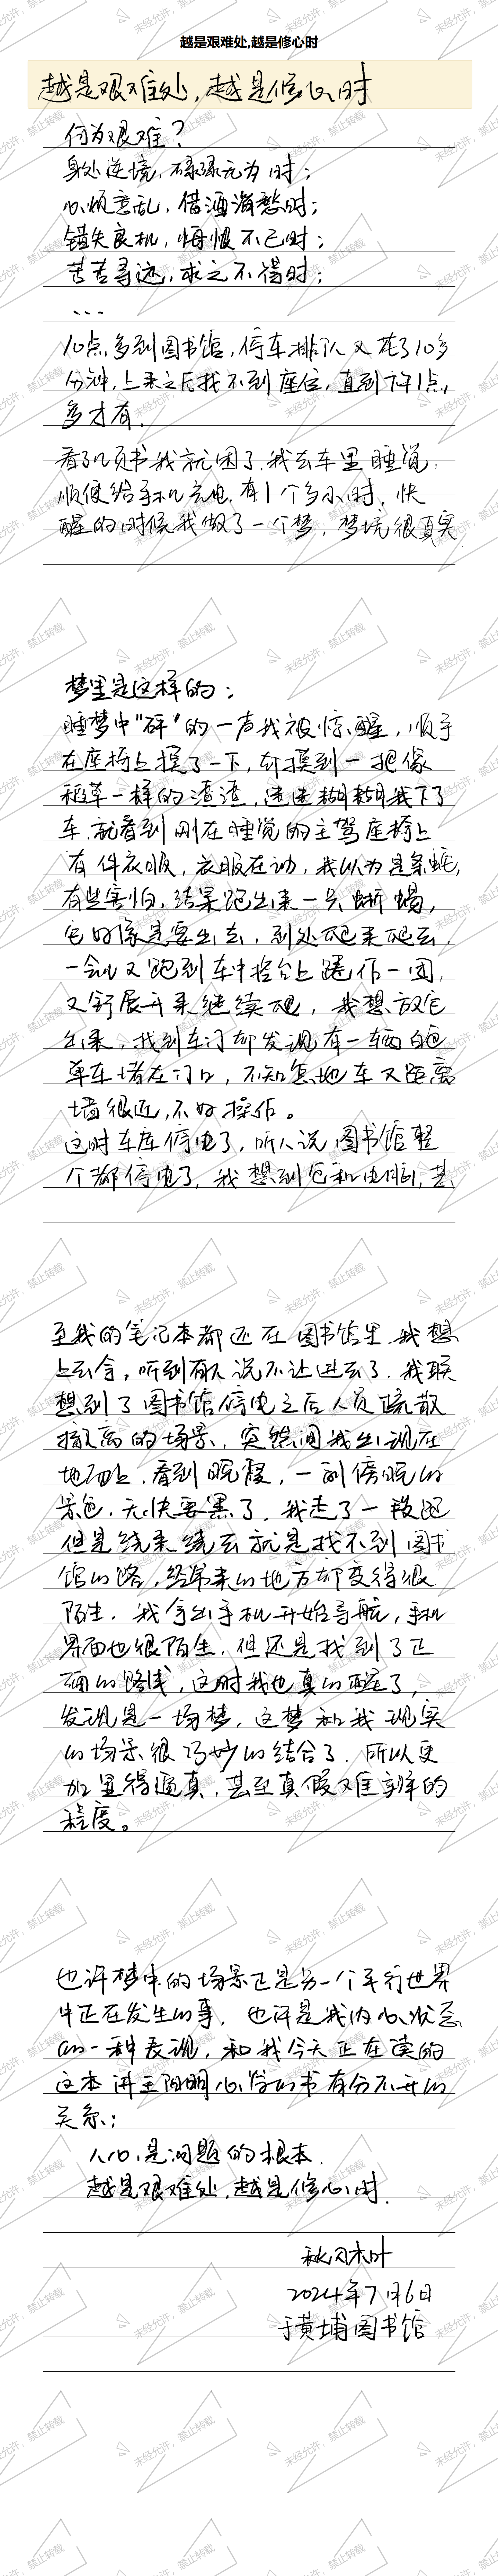 越是艰难处,越是修心时
越是艰难处，越是修心时
何为艰难？
身处逆境，碌碌无为时；
心烦意乱，借酒消愁时；
错失良机，悔恨不已时；
苦苦寻觅，求之不得时；
...
10点多到图书馆，停车排队又花了10多
分钟，上来之后找不到座位，直到下午1点
多才有。
看了几页书我就困了，我去车里睡觉，
顺便给手机充电，有1个多小时，快
醒的时候我做了一个梦，梦境很真实
梦里是这样的：
睡梦中“砰”的一声我被惊醒，顺手
在座椅上摸了一下，却摸到一把像
稻草一样的渣渣，迷迷糊糊我下了
车，就看到刚在睡觉的主驾座椅上
有件衣服，衣服在动，我以为是条蛇，
有些害怕，结果跑出来一只蜥蜴，
它好像是要出去，到处爬来爬去，
一会儿又跑到车中控台上蜷作一团，
又舒展开来继续爬，我想放它
出来，找到车门却发现有一辆白色
单车堵在门口，不知怎地车又距离
墙很近，不好操作。
这时车库停电了，听人说图书馆整
个都停电了，我想到包和电脑，甚
至我的笔记本都还在图书馆里，我想
上去拿，听到有人说不让进去了，我联
想到了图书馆停电之后人员疏散
撤离的场景，突然间我出现在
地面上，看到晚霞，一副傍晚的
景色，天快要黑了，我走了一段路
但是绕来绕去就是找不到图书
馆的路，经常来的地方却变得很
陌生，我拿出手机开始导航，手机
界面也很陌生，但还是找到了正
确的路线，这时我也真的醒了，
发现是一场梦，这梦和我现实
的场景很巧妙的结合了，所以更
加显得逼真，甚至真假难辨的
程度。
也许梦中的场景正是另一个平行世界
中正在发生的事，也许是我内心状态
的一种表现，和我今天正在读的
这本讲王阳明心学的书有分不开的
关系；
人心是问题的根本，
越是艰难处，越是修心时。
秋闪木叶
2024年7月6日
于黄埔图书馆
未经允许，禁止转载